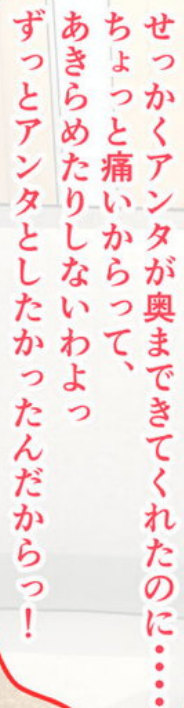 せっかくアンタが奥まできてくれたのに‥‥
ちょっと痛いからって、
あきらめたりしないわよっ
ずっとアンタとしたかったんだからっ！